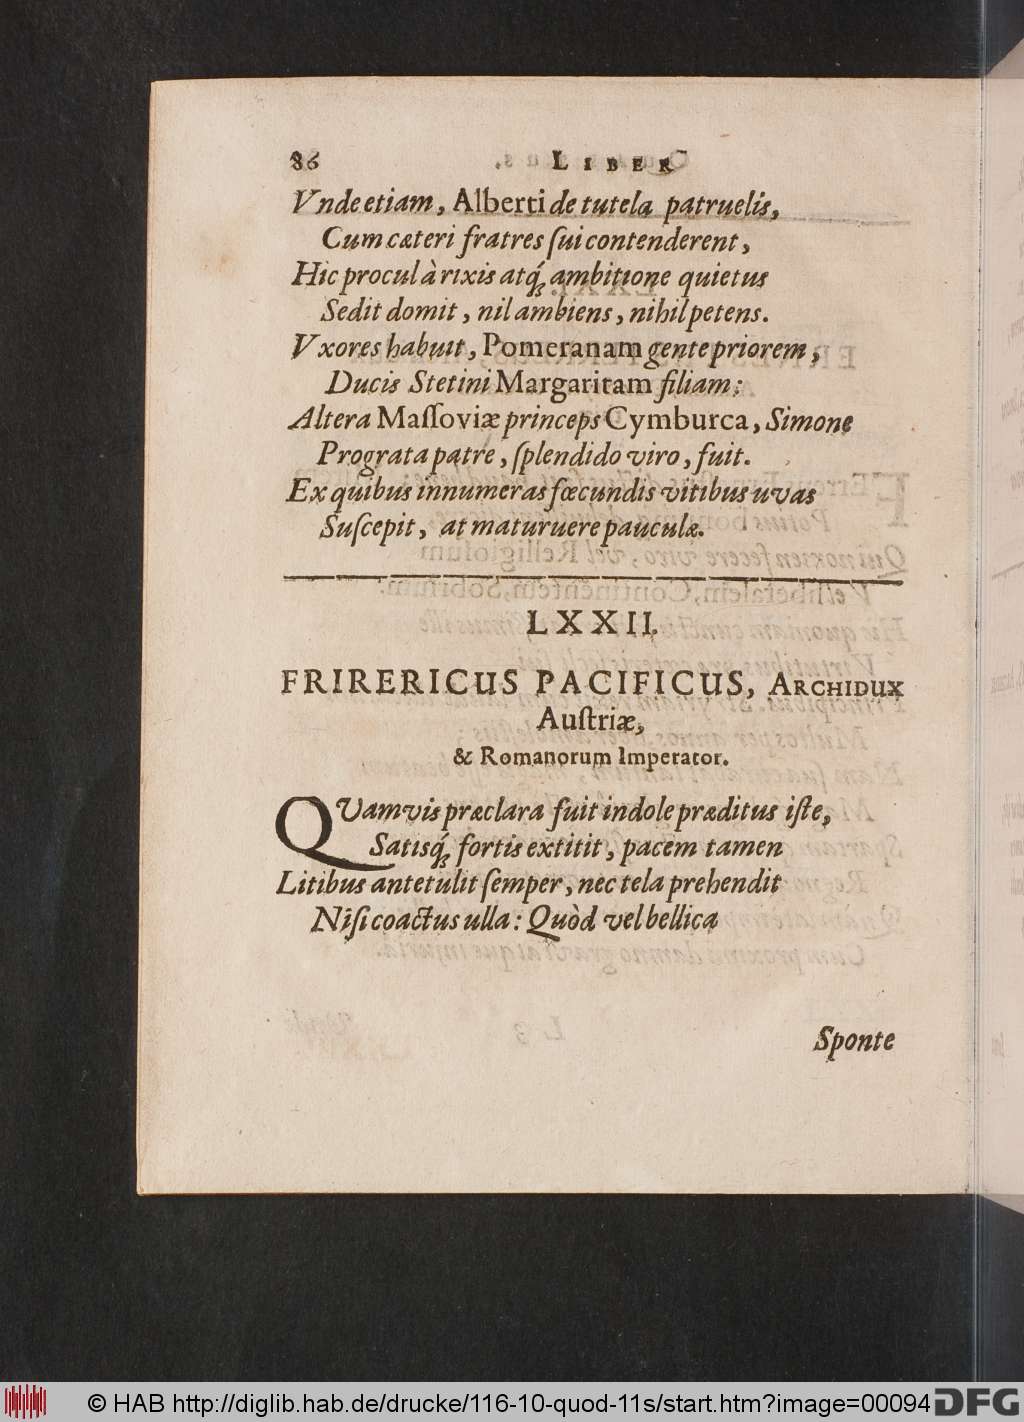 86 LIBER
Vnde etiam, Alberti de tutela patruelis,
Cum cæteri fratres ſui contenderent,
Hic procul à rixis atq́; ambitione quietus
Sedit domit, nil ambiens, nihil petens.
Vxores habuit, Pomeranam gente priorem,
Ducis Stetini Margaritam filiam:
Altera Maſſoviæ princeps Cymburca, Simone
Prognata patre, ſplendido viro, fuit.
Ex quibus innumeras fœcundis vitibus uvas
Suſcepit, at maturuere pauculæ.
LXXII.
FRIRERICUS PACIFICUS, ARCHIDUX
Auſtriæ,
& Romanorum Imperator.
QVamvis præclara fuit indole præditus iſte,
Satisq́; fortis extitit, pacem tamen
Litibus antetulit ſemper, nec tela prehendit
Niſi coactus ulla: Quòd vel bellica
Sponte
© HAB http://diglib.hab.de/drucke/116-10-quod-11s/start.htm?image=00094 DFG